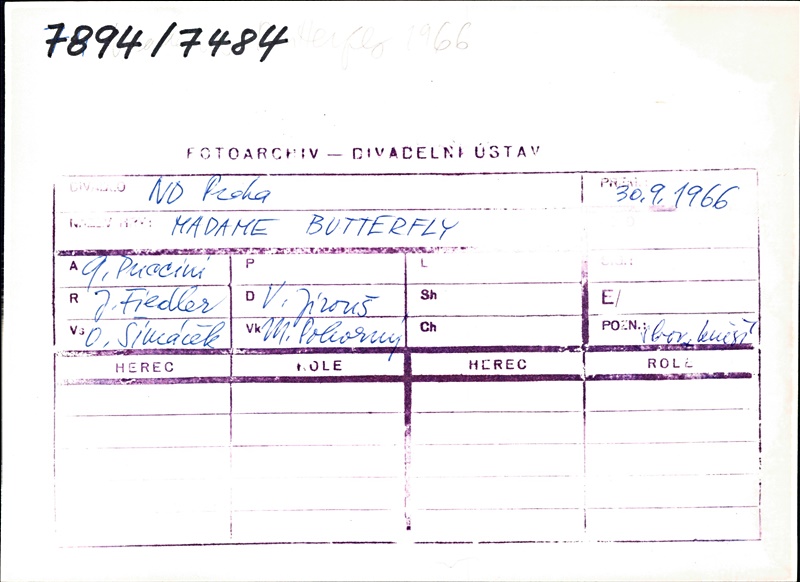 7894/7484
1966
FOTOARCHIV — DIVADELNÍ ÚSTAV
DIVADLO ND Praha
PREM. 30.9.1966
NÁZEV HRY: MADAME BUTTERFLY
A G. Puccini P L
R J. Fiedler D V. Jirouš Sh E/
Vs O. Šimáček Vk M. Pokorný Ch POZN.: sbor,
HEREC ROLE HEREC ROLE